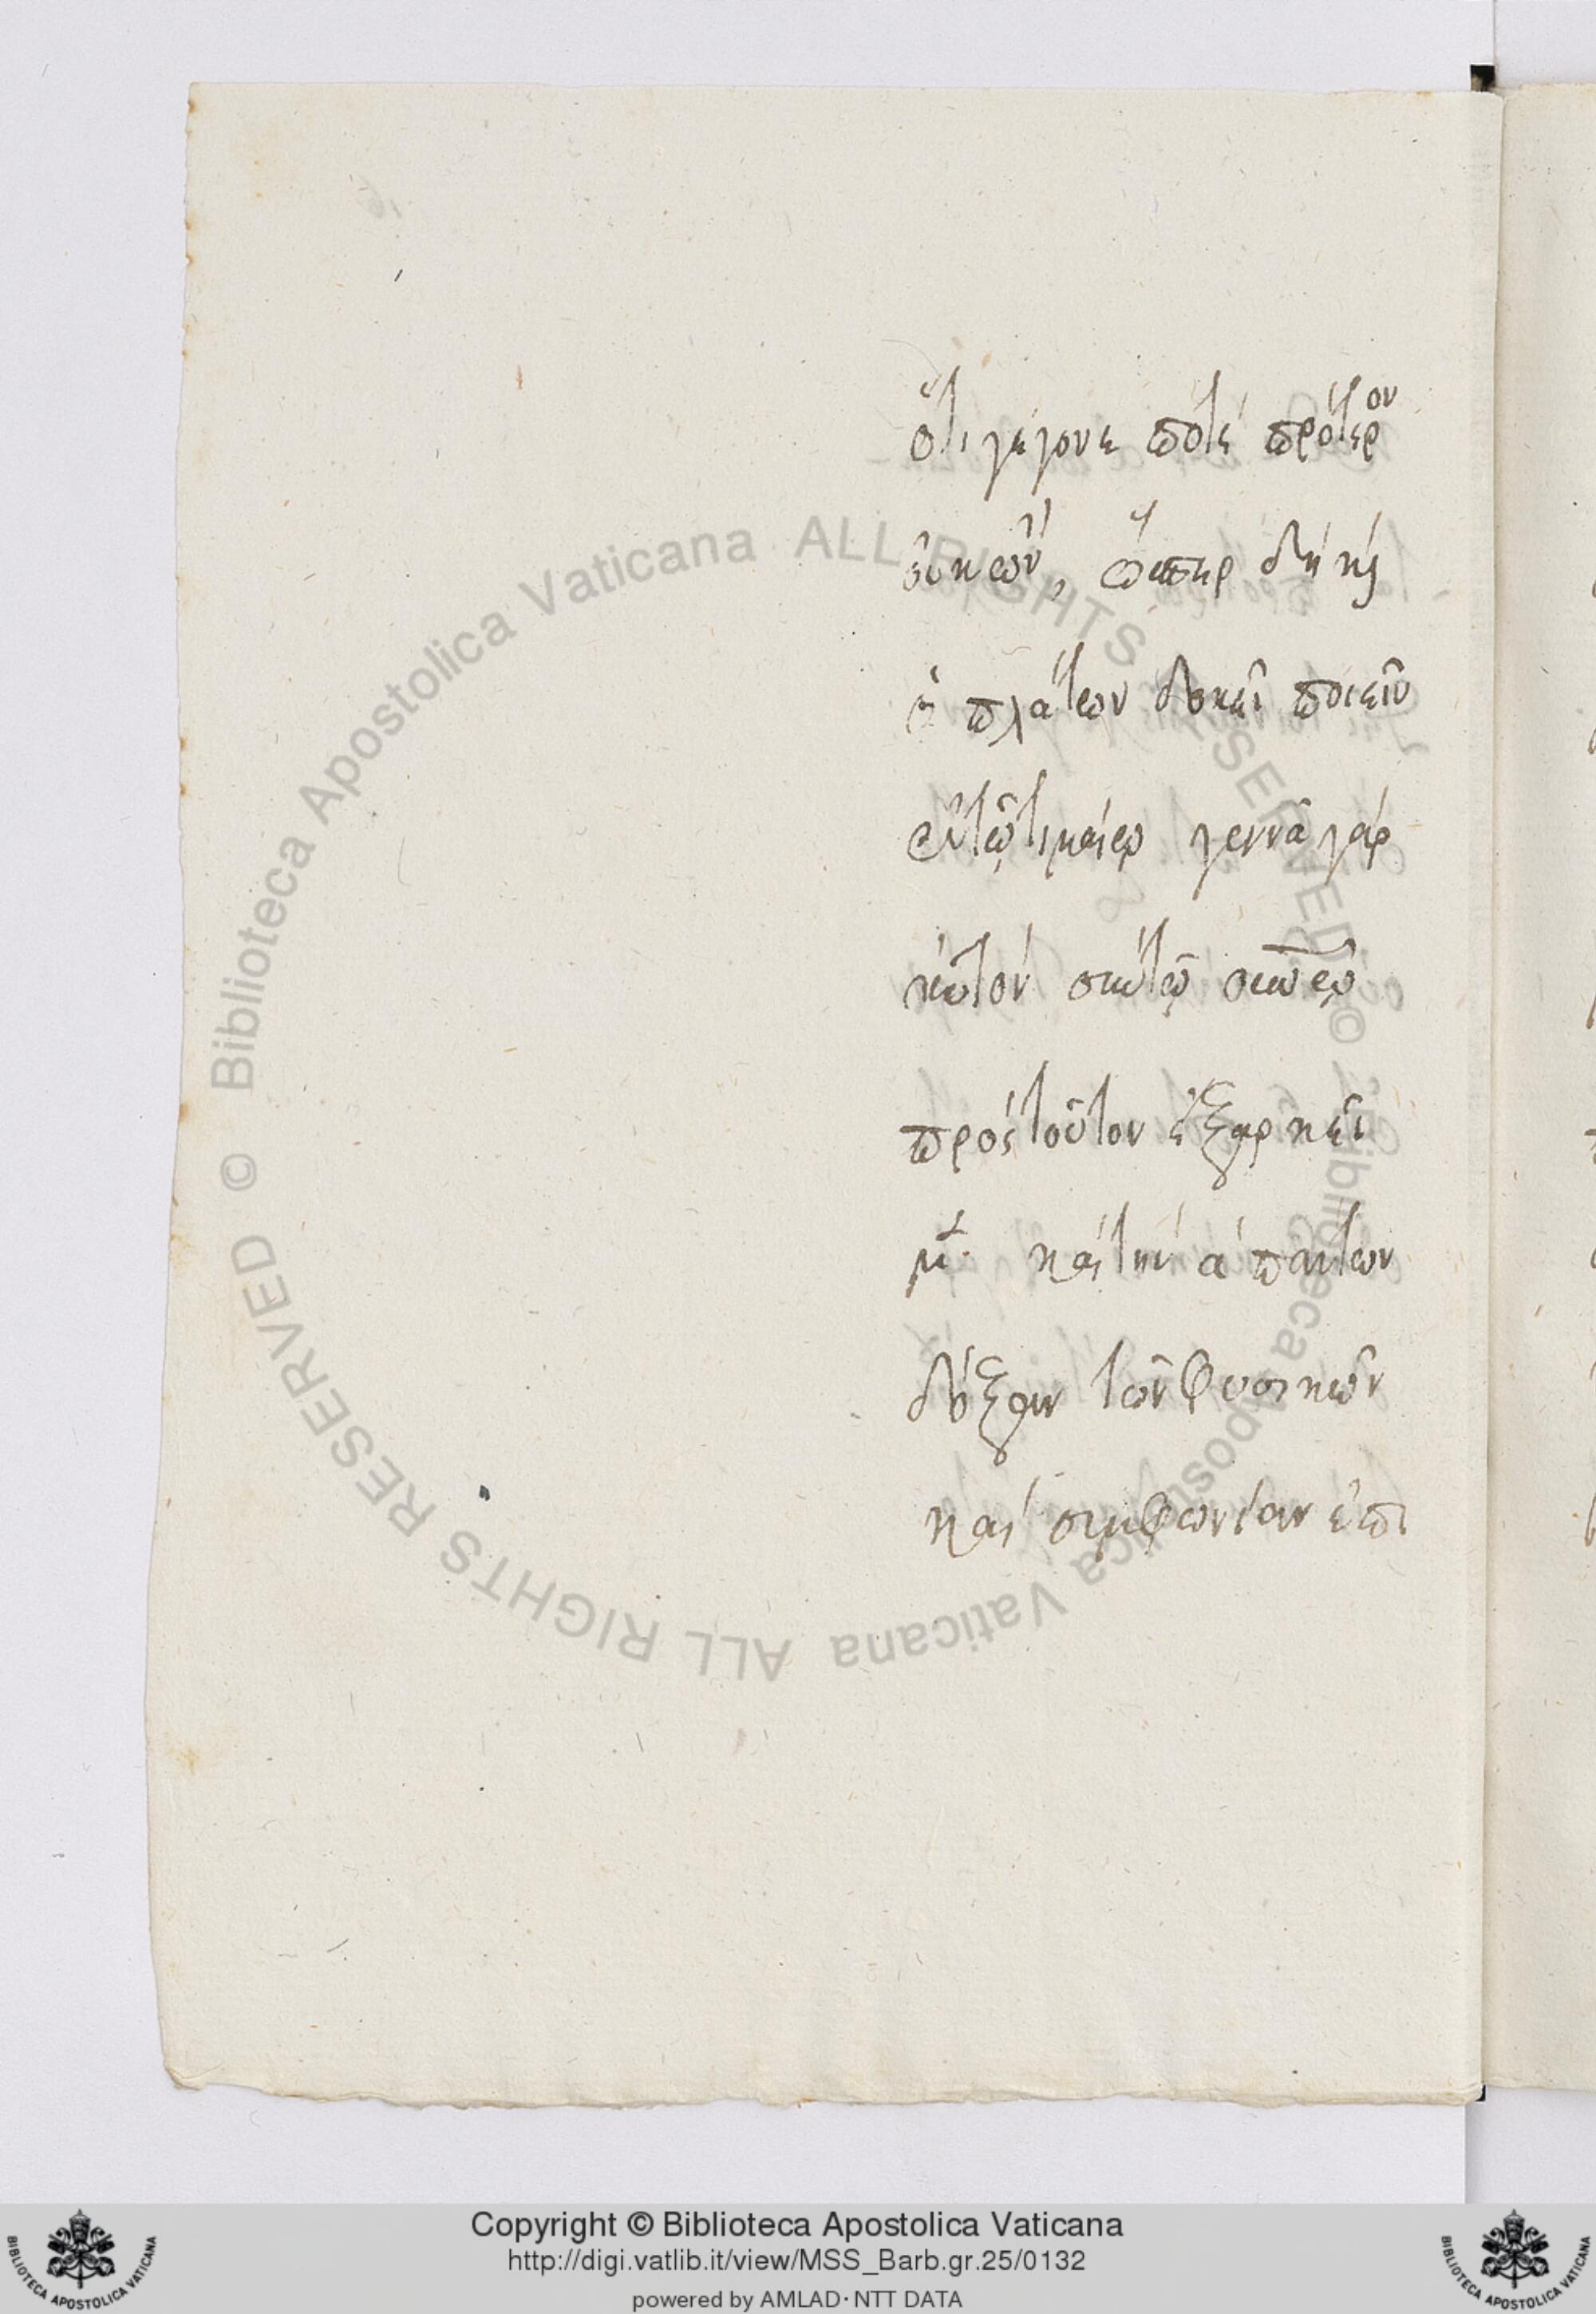 ὅτι γέγονε ποτὲ πρότερον
οὐκ ὤν, ὥσπερ δὴ καὶ
ὁ πλάτων δοκεῖ ποιεῖν
ἐν τῷ τιμαίῳ γεννᾶ γὰρ
πρὸς τοῦτον ἐξαρκεῖ
ἁπάντων
δόξαν τῶν φυσικῶν
καὶ συμφωνίαν ἐπι
Biblioteca Apostolica Vaticana ALL RIGHTS RESERVED © Biblioteca Apostolica Vaticana ALL RIGHTS RESERVED ©
Copyright © Biblioteca Apostolica Vaticana
http://digi.vatlib.it/view/MSS_Barb.gr.25/0132
powered by AMLAD·NTT DATA
BIBLIOTECA APOSTOLICA VATICANA
BIBLIOTECA APOSTOLICA VATICANA